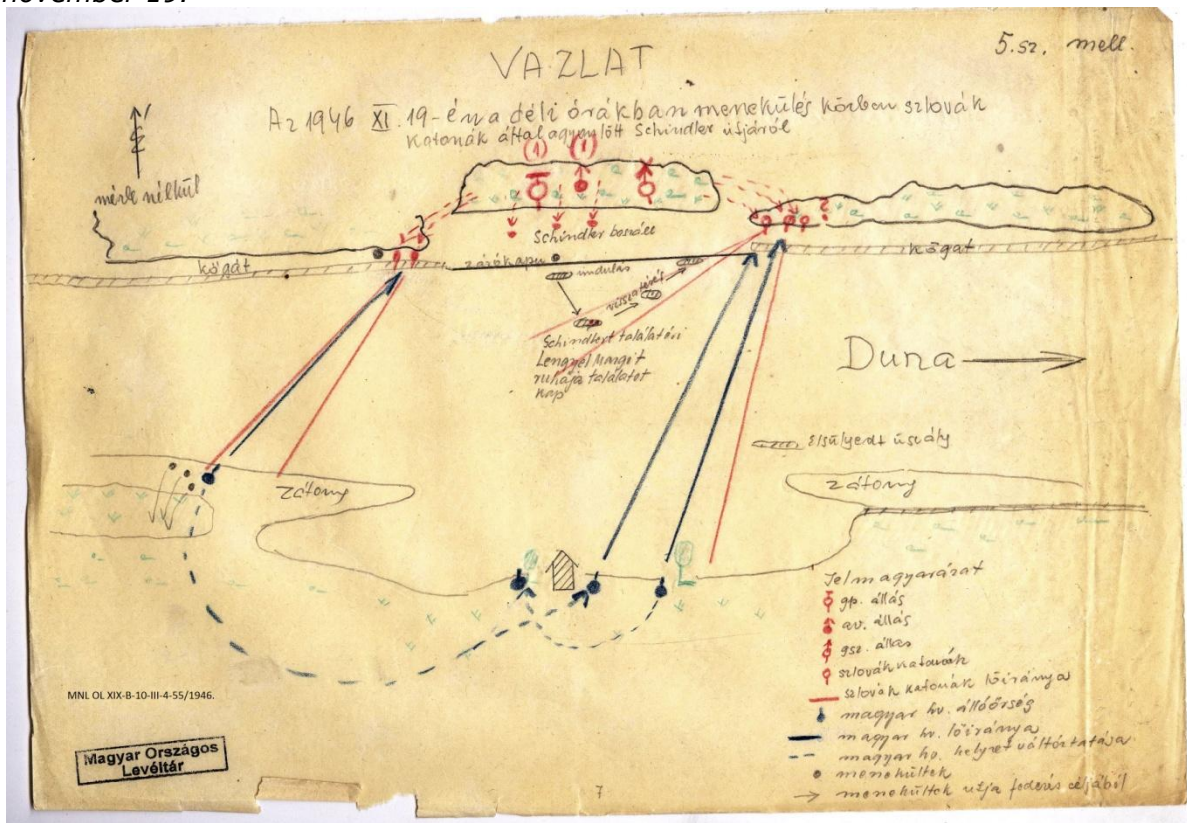 november 19.
5. sz. mell.
VAZLAT
Az 1946 XI. 19-én a déli órákban menekülés közben szlovák
katonák által agyonlőtt Schindler útjáról
mérték nélkül
(1) (1)
Schindler
kőgát
kőgát
zárókapu
indulás
visszatérés
Schindlert találat éri
Lengyel Margit
ruhája találatot
kap
Duna
Elsülyedt uszály
zátony
zátony
Jelmagyarázat
gp. állás
av. állás
gsz. állás
szlovák katonák
szlovák katonák lőiránya
magyar hv. állóőrség
magyar hv. lőiránya
magyar hv. helyzetváltoztatása
menekültek
menekültek útja fedezés céljából
MNL OL XIX-B-10-III-4-55/1946.
Magyar Országos
Levéltár
7